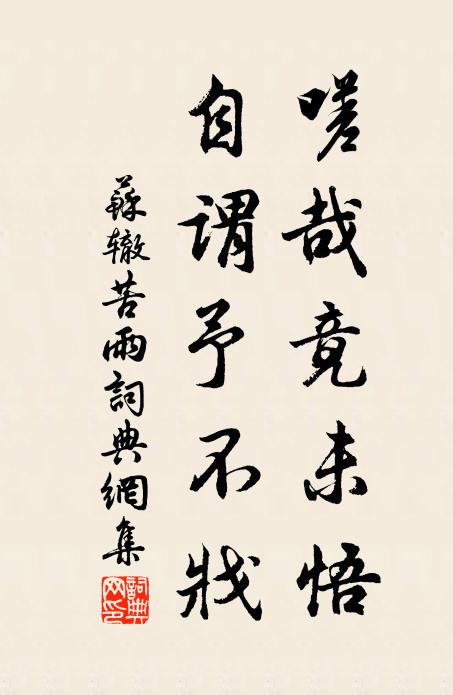 嗟哉竟未悟
自謂予不戕
蘇轍苦雨詞典網集
詞典
网印